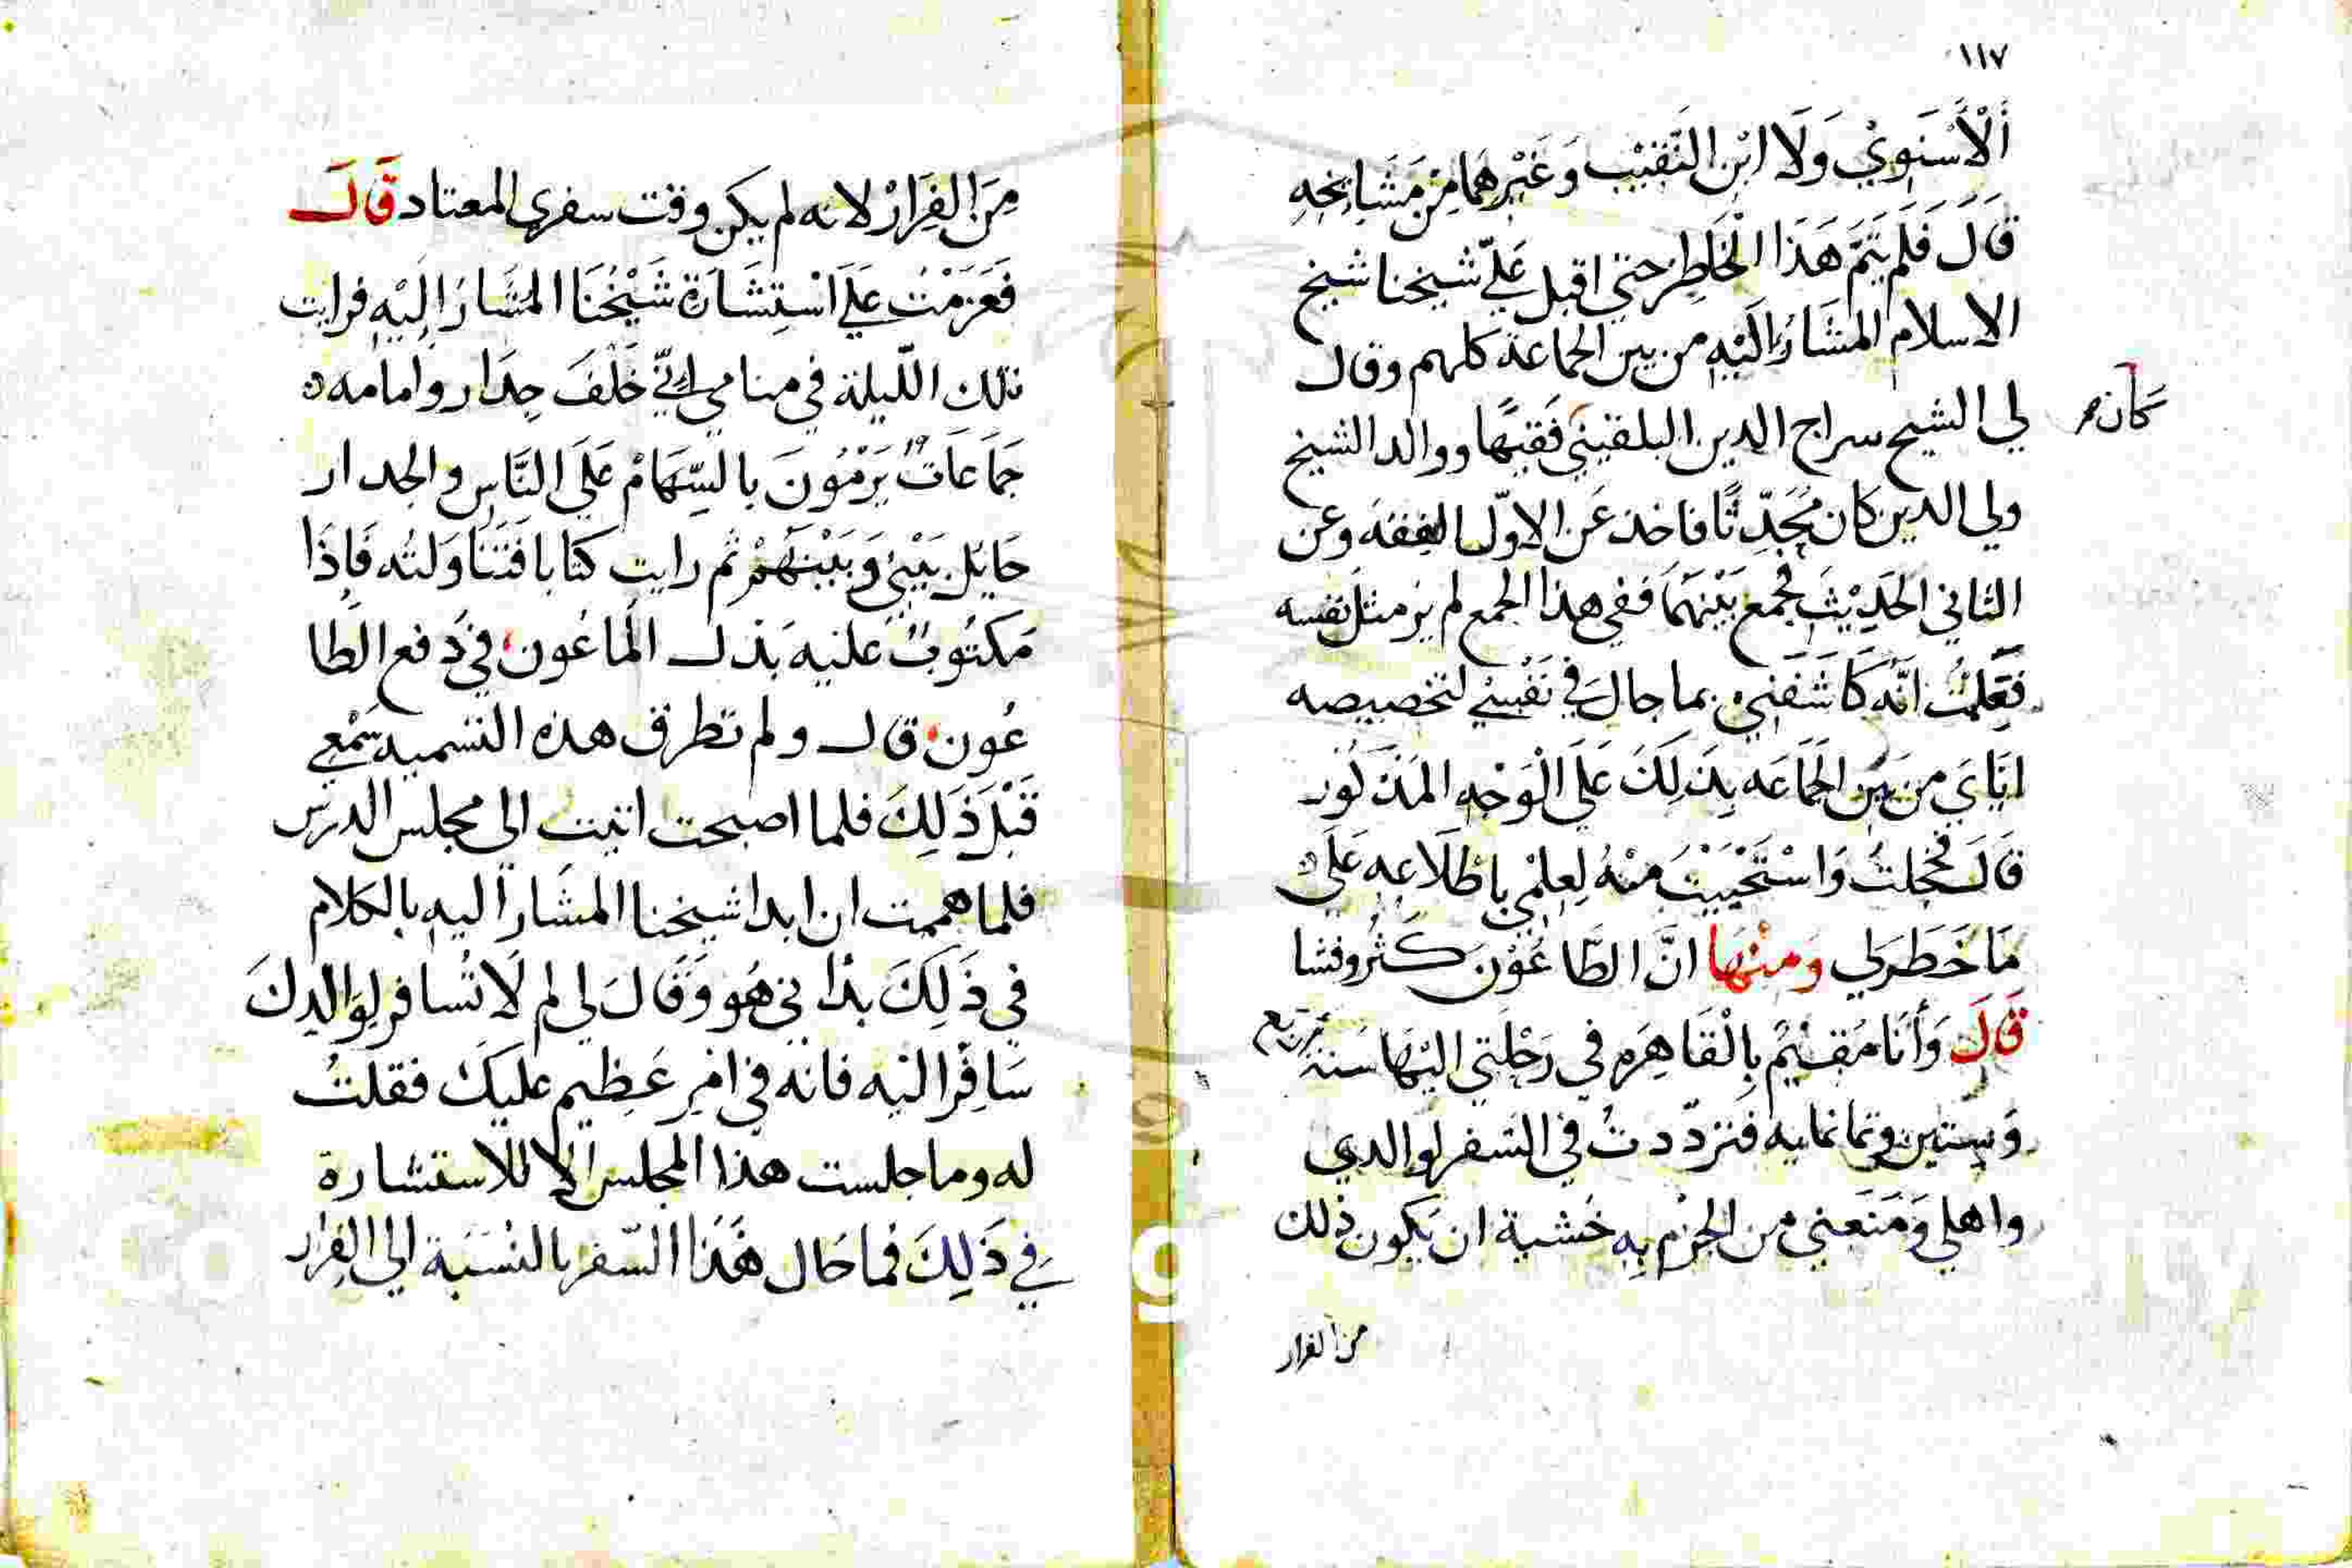 ١١٧
أَلْأَسْنَوِيْ وَلَا ابْن النَّقِيْب وَغَيْرهمَا مِنْ مَشَايِخِهِ
قَالَ فَلَم يَتَمَّ هَذَا الْخَاطِر حتي اقبل عَلَيّ شيخنا شيخ
الاسلام المشَارُ اليْهِ من بين الجماعة كلهم وقال
لي الشيخ سراج الدين البلقيني فَقيهًا ووالد الشيخ
كان
ولي الدين كان مُحَدِّثًا فاخذ عَن الاوّل الفقه وعن
الثاني الحَدِيْث فجمع بَيْنهَمَا ففي هذا الجمع لم يَر مثل نفسه
فَعَلِمْتُ انَّه كَاشَفَنِيْ بما جال في نَفْسِيْ لتخصيصه
ايَّايَ من بَيْن الجَمَاعَه بِذَلِكَ عَلَي الْوَجْهِ المَذْكُور
قَالَ فخجلتُ وَاسْتَحْيَيْتُ منْهُ لِعِلْمِي بِاطْلَاعِهِ عَلَي
مَا خَطَرَ لي وَمِنْهَا انَّ الطَّاعُوْنَ كَثُر وفشا
قَالَ وَأَنَا مُقِيْمٌ بِالْقَاهِرَه في رَحْلَتِي اليْهَا سَنَة اربع
وَسِتين وثمانمايه فتردّدتُ في السَفر لوالدي
واهلي وَمَنَعَنِي من الجَزْم بِه خَشية ان يَكون ذلك
من الفرار
مِنَ الفِرَارْ لانه لم يكن وقت سفري المعتاد قَالَ
فَعَزَمْتُ عَلَيَ اسْتِشَارَة شَيْخُنَا المشَارُ الِيْهِ فرايت
تلك اللّيلة في منامي انّي خَلْفَ جِدَار وامامه
جَمَاعَاتٌ يَرْمُونَ بالسِّهَامْ عَلَي النَّاسِ والجدار
حَايلٌ بَيْنِيْ وَبَيْنَهُمْ ثم رايت كتابا فَتَنَاوَلتُه فَاِذَا
مَكتُوبٌ عليه بَذل المَاعُون في دَفع الطا
عُون قال ولم تطرق هذه التسميه سَمْعِي
قَبْلَ ذَلِكَ فلما اصبحت اتيت الي مجلس الدرَس
فلما هممت ان ابدا شيخنا المشَارُ اليه بالكلام
في ذَلِكَ بدَأني هُو وَقَالَ لي لم لَا تُسافر لِوَالِدكَ
سَافِرْ اليْه فانه في امْرٍ عَظِيم عليكَ فقلتُ
له وما جلست هذا المجلس الا للاستشارة
فِي ذَلِكَ فما حَال هَذَا السّفر بالنْسَبَة الي الفِرَار